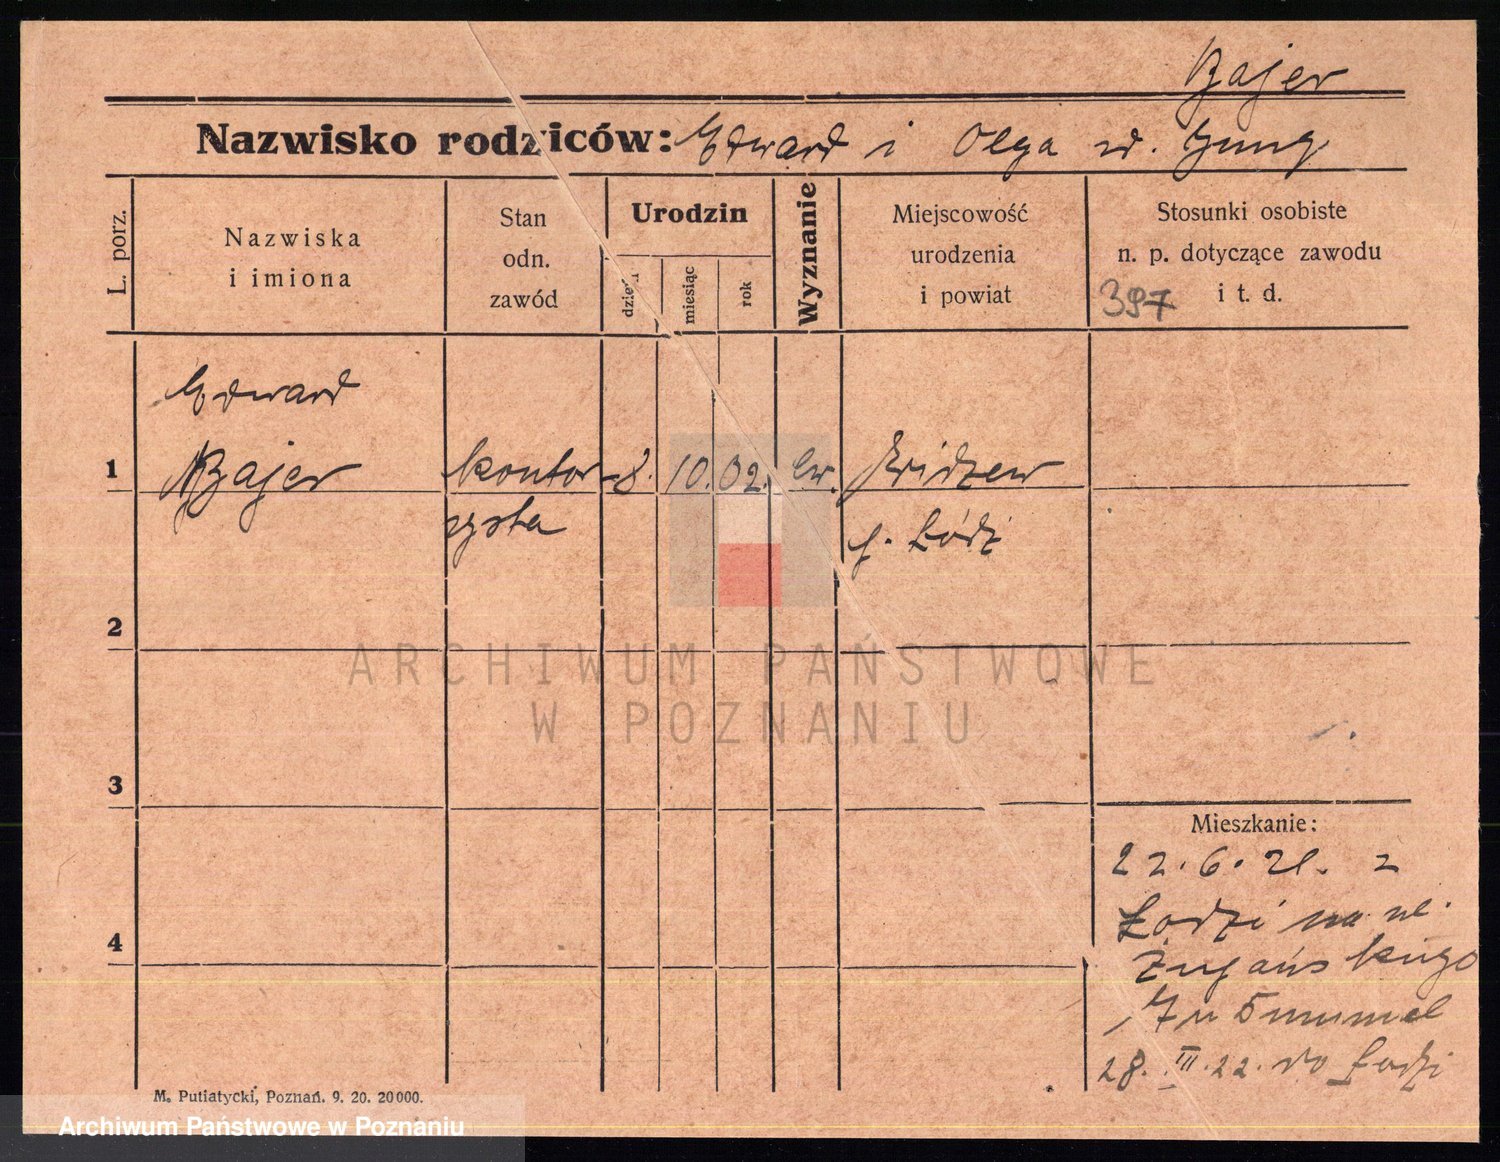 Bajer
Nazwisko rodziców: Edward i Olga ur. Jung
L. porz.
Nazwiska
i imiona
Stan
odn.
zawód
Urodzin
dzień
miesiąc
rok
Wyznanie
Miejscowość
urodzenia
i powiat
Stosunki osobiste
n. p. dotyczące zawodu
i t. d.
397
Edward
1 Bajer kontor- 8. 10. 02. ew. Widzew
zysta p. Łódź
2
3
4
Mieszkanie:
22. 6. 21. z
Łodzi na ul.
28. III. 22. do Łodzi
M. Putiatycki, Poznań. 9. 20. 20000.
ARCHIWUM PAŃSTWOWE
W POZNANIU
Archiwum Państwowe w Poznaniu